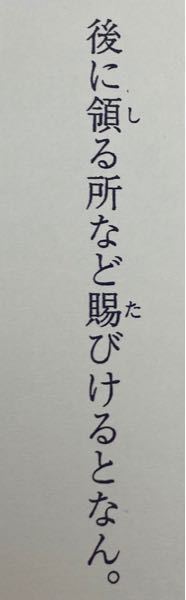 後に領る所など賜びけるとなん。